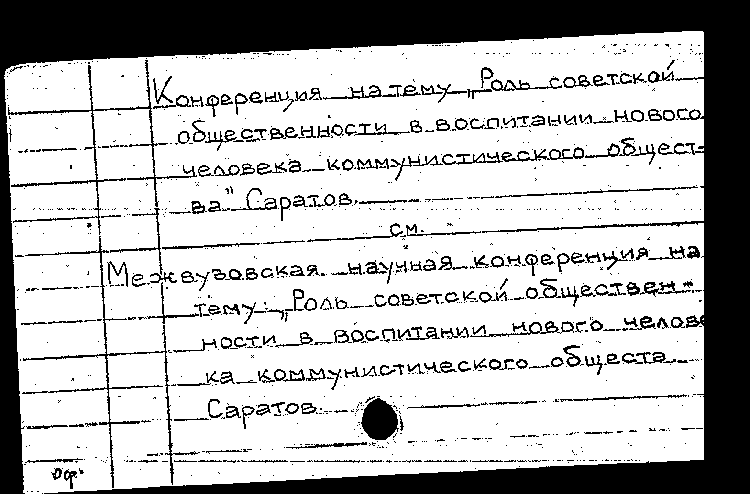 Конференция на тему „Роль советской
общественности в воспитании нового
человека коммунистического общест-
ва" Саратов.
см.
Межвузовская научная конференция на
тему: „Роль советской обществен-
ности в воспитании нового челове
ка коммунистического общеста.
Саратов.